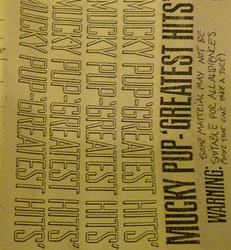 MUCKY PUP-'GREATEST HITS'
MUCKY PUP-'GREATEST HITS'
MUCKY PUP-'GREATEST HITS'
MUCKY PUP-'GREATEST HITS'
MUCKY PUP-'GREATEST HITS'
MUCKY PUP-'GREATEST HITS'
WARNING:
SOME MATERIAL MAY NOT BE
SUITABLE FOR ALL AUDIENCES.
TAKE A JOKE